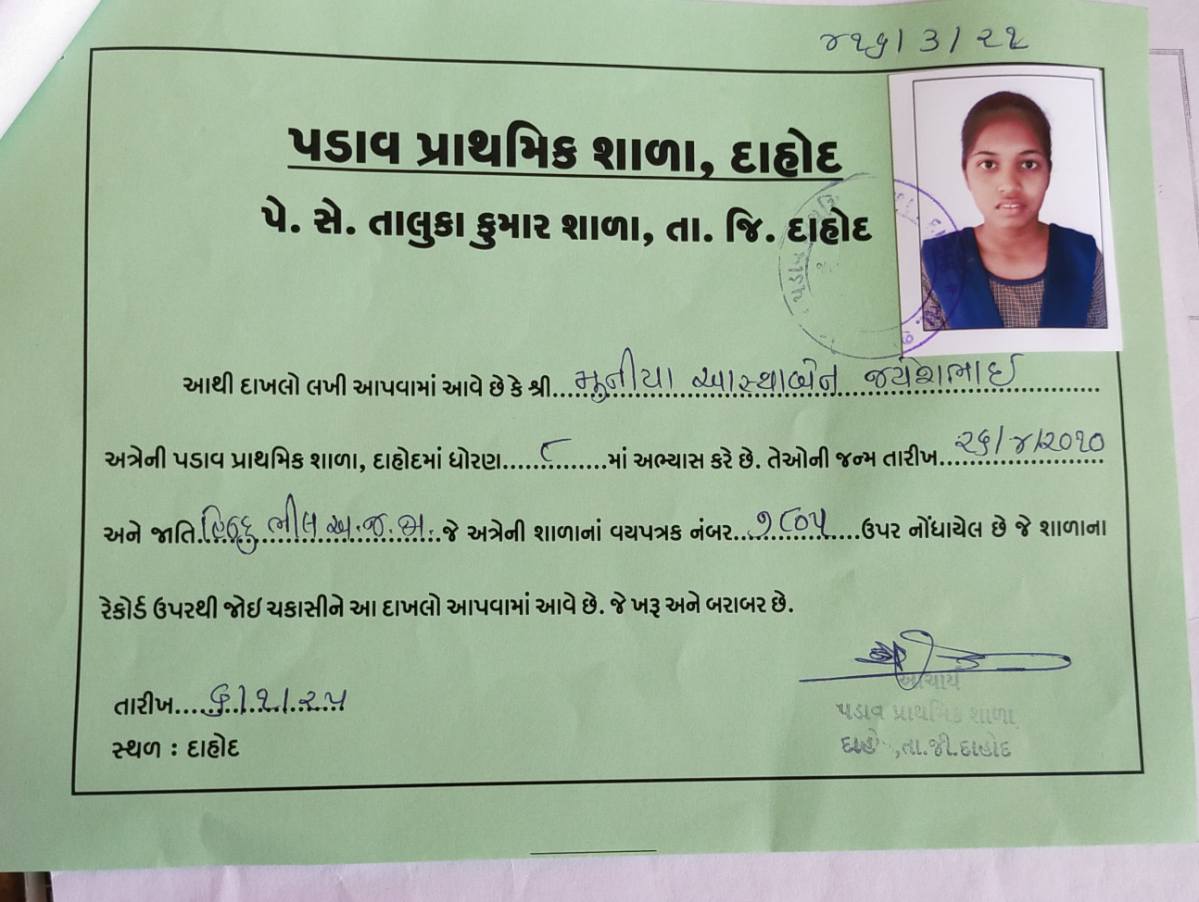 ૪૨૬/૩/૨૨
પડાવ પ્રાથમિક શાળા, દાહોદ
પે. સે. તાલુકા કુમાર શાળા, તા. જિ. દાહોદ
આથી દાખલો લખી આપવામાં આવે છે કે શ્રી....મુનીયા આસ્થાબેન જયેશભાઈ....
અત્રેની પડાવ પ્રાથમિક શાળા, દાહોદમાં ધોરણ....૮....માં અભ્યાસ કરે છે. તેઓની જન્મ તારીખ....૨૬/૪/૨૦૧૦
અને જાતિ..હિન્દુ ભીલ અ.જ.જા...જે અત્રેની શાળાનાં વયપત્રક નંબર....૭૮૦૫....ઉપર નોંધાયેલ છે જે શાળાના
રેકોર્ડ ઉપરથી જોઈ ચકાસીને આ દાખલો આપવામાં આવે છે. જે ખરૂ અને બરાબર છે.
તારીખ....૬/૧/૨૫
સ્થળ : દાહોદ
આચાર્ય
પડાવ પ્રાથમિક શાળા
દાહોદ,તા.જી.દાહોદ